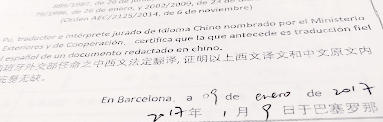 889/1987, de 26 de jun
79/1996, de 26 de enero, y 2002/2009, de 23 de
(Orden AEC/2125/2014, de 6 de noviembre)
Po, traductor e intérprete jurado de Idioma Chino nombrado por el Ministerio
Exteriores y de Cooperación, certifica que la que antecede es traducción fiel
al español de un documento redactado en chino.
西班牙外交部任命之中西文法定翻译, 证明以上西文译文和中文原文内
完整无缺.
En Barcelona, a 09 de enero de 2017
2017年 1 月 9 日于巴塞罗那